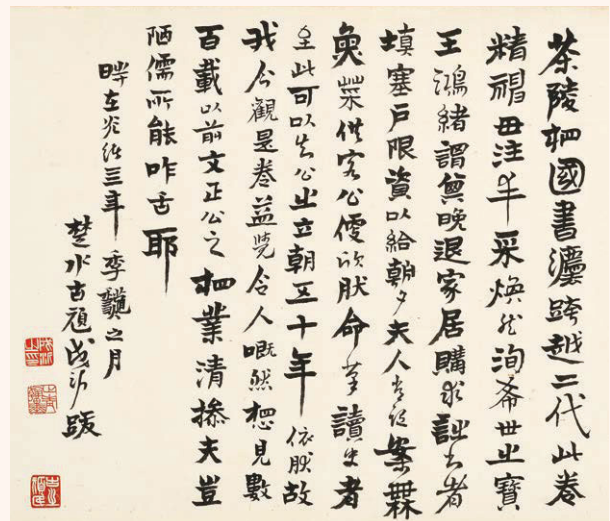 茶陵相國書灋跨越二代此卷
精神毌注丰采煥然洵希世之寶
王鴻緒謂晚退家居購求者
填塞戶限資以給朝夕夫人案無
魚菜供客公便欣肰命筆讀史者
至此可以公之立朝五十年依肰故
我今觀是卷益覺令人嘅然想見數
百載以前文正公之相業清操夫豈
陋儒所能咋舌耶
時在光緒三年季之月
楚水古沂跋